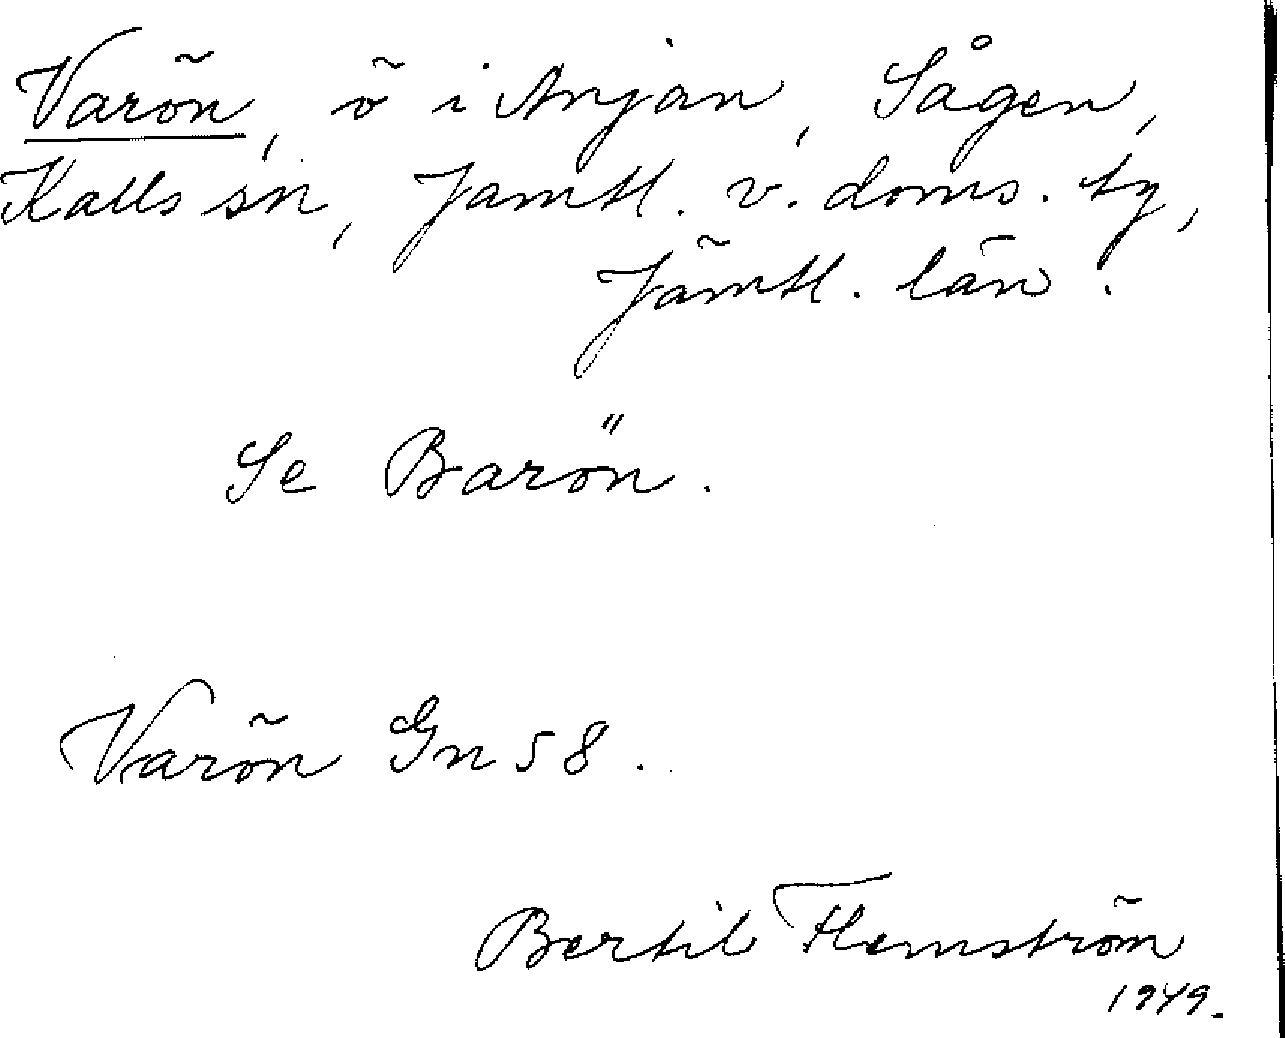 Varön, ö i Anjan, Sågen,
Kalls sn, Jämtl. v. doms. tg,
Jämtl. län.
Se Barön.
Varön Gn 58.
Bertil Flemström
1949.